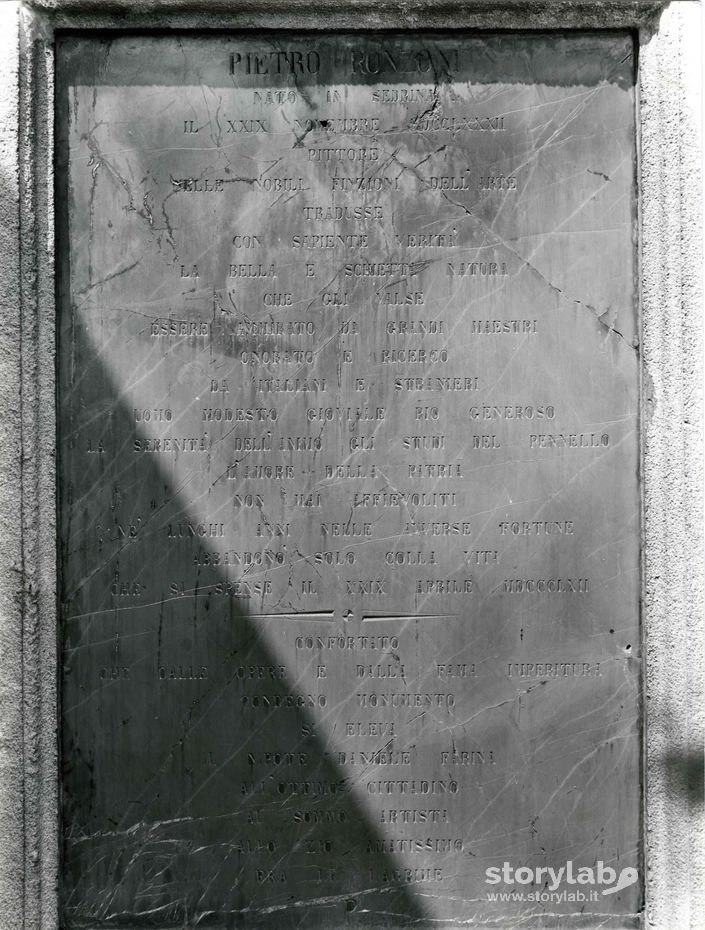 PIETRO RONZONI
NATO IN SEDRINA
IL XXIX NOVEMBRE MDCCLXXXII
PITTORE
NELLE NOBILI FINZIONI DELL'ARTE
TRADUSSE
CON SAPIENTE VERITÀ
LA BELLA E SCHIETTA NATURA
CHE GLI VALSE
ESSERE AMMIRATO DA GRANDI MAESTRI
ONORATO E RICERCO
DA ITALIANI E STRANIERI
UOMO MODESTO GIOVIALE PIO GENEROSO
LA SERENITÀ DELL'ANIMO GLI STUDI DEL PENNELLO
L'AMORE DELLA PATRIA
NON MAI AFFIEVOLITI
NE' LUNGHI ANNI NELLE AVVERSE FORTUNE
ABBANDONÒ SOLO COLLA VITA
CHE SI SPENSE IL XXIX APRILE MDCCCLXII
CONFORTATO
CHE DALLE OPERE E DALLA FAMA IMPERITURA
CONDEGNO MONUMENTO
SI ELEVA
IL NIPOTE DANIELE FARINA
ALL'OTTIMO CITTADINO
AL SOMMO ARTISTA
ALLO ZIO AMATISSIMO
FRA LE LAGRIME
P
storylab
www.storylab.it